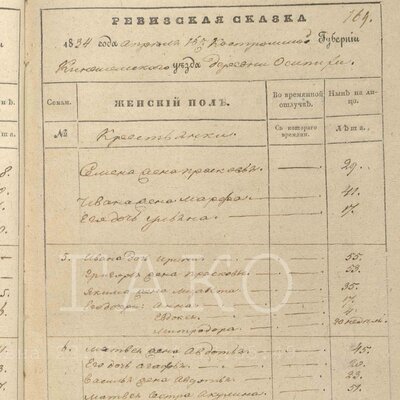 РЕВИЗСКАЯ СКАЗКА
169.
1834 года апреля 15 Костромской Губерніи
Кинешемского уѣзда деревни Осипихи.
Семьи.
ЖЕНСКІЙ ПОЛЪ.
Во временной отлучкѣ.
Нынѣ на лицо.
№
Крестьянки.
Съ котораго времени.
Лѣта.
Семена жена Прасковья 29.
Ивана жена Марфа 41.
Его дочь Ульяна 17.
5. Ивана дочь Ирина 55.
Григорья жена Прасковья 53.
Якима жена 35.
Анна 17.
Евдокея 4.
Митродора
6. Матвея жена Авдотья 45.
Его дочь Агафья 20.
Василья жена Авдотья 23.
Матвея сестра Акулина 51.
ГАКО